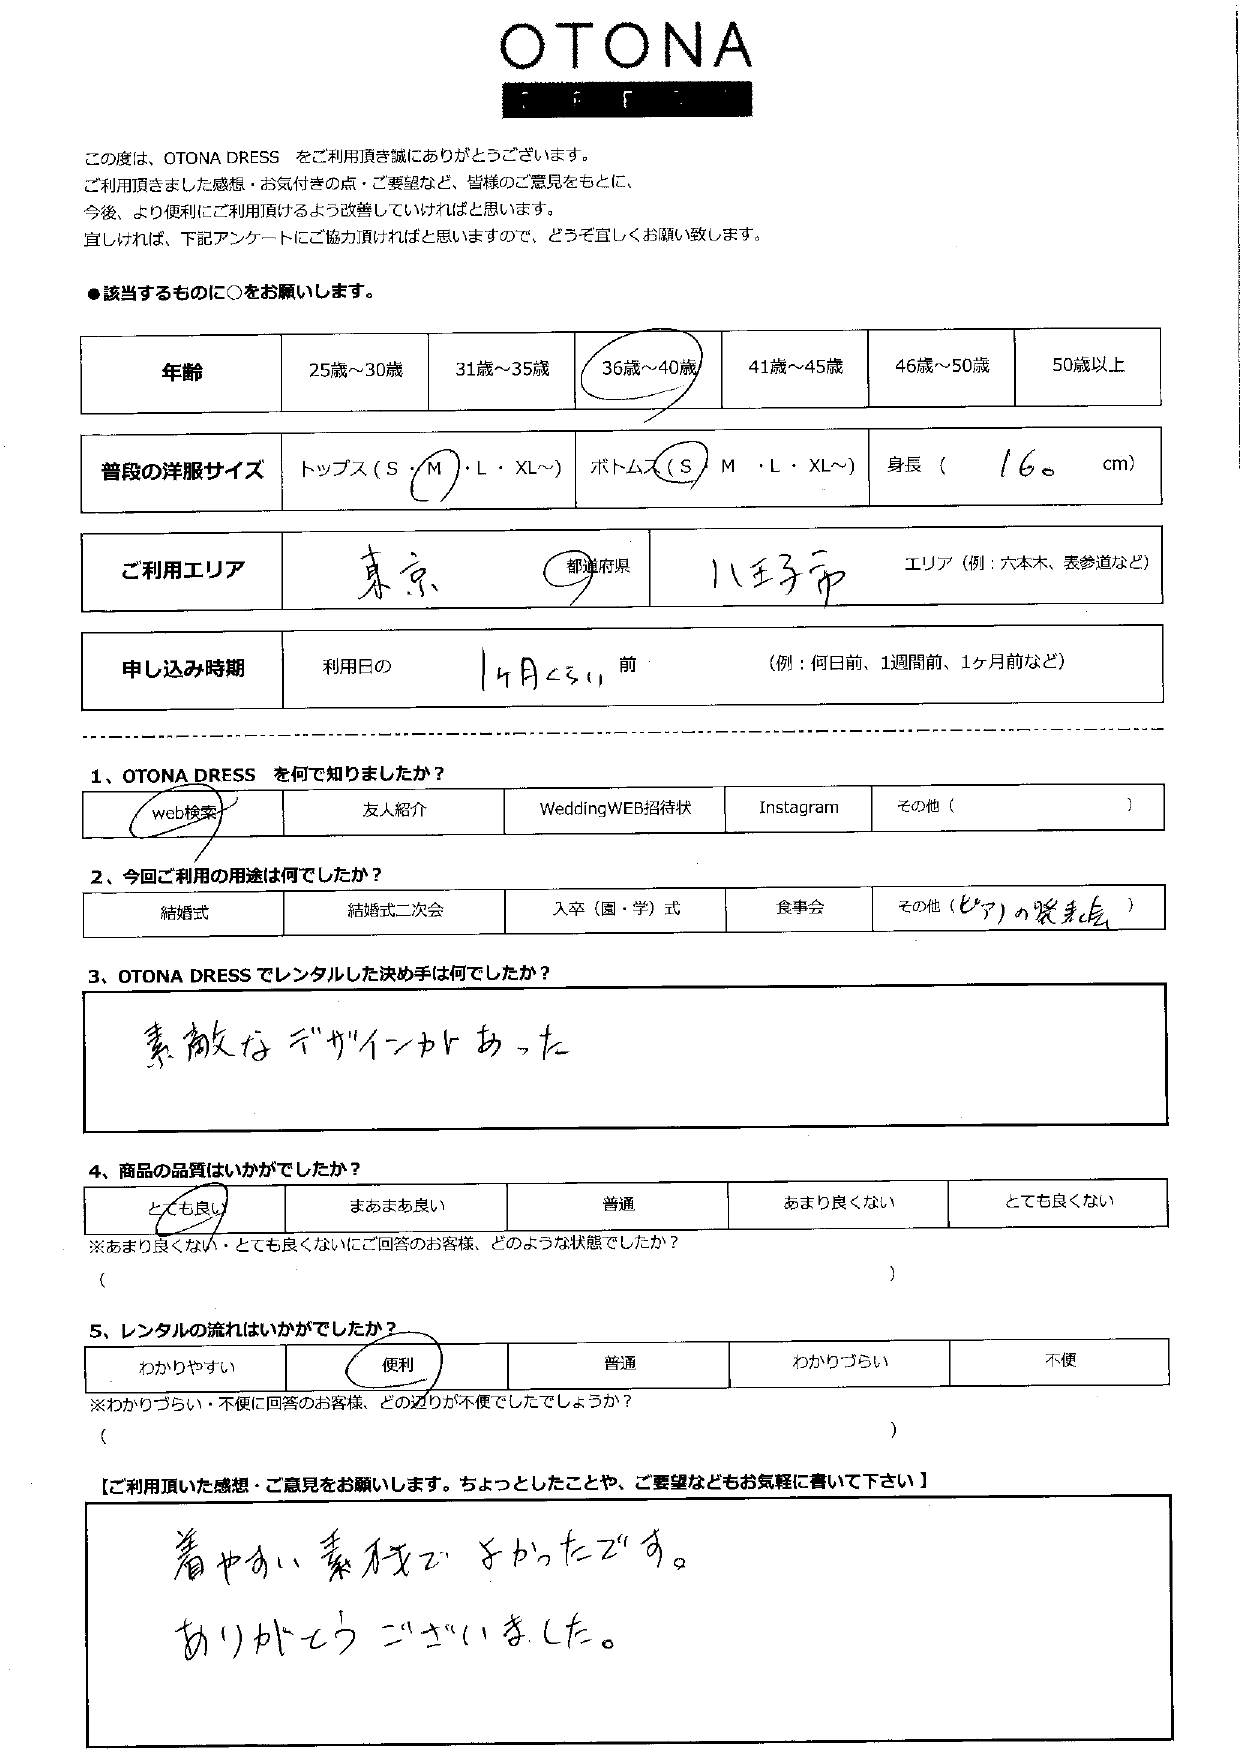 OTONA
この度は、OTONA DRESS　をご利用頂き誠にありがとうございます。
ご利用頂きました感想・お気付きの点・ご要望など、皆様のご意見をもとに、
今後、より便利にご利用頂けるよう改善していければと思います。
宜しければ、下記アンケートにご協力頂ければと思いますので、どうぞ宜しくお願い致します。
●該当するものに○をお願いします。
年齢 25歳～30歳 31歳～35歳 36歳～40歳 41歳～45歳 46歳～50歳 50歳以上
普段の洋服サイズ トップス ( S ・ M ・ L ・ XL～) ボトムス ( S ・ M ・ L ・ XL～) 身長 ( 160 cm)
ご利用エリア 東京 都道府県 八王子市 エリア（例：六本木、表参道など）
申し込み時期 利用日の 1ヶ月くらい 前 （例：何日前、1週間前、1ヶ月前など）
1、OTONA DRESS　を何で知りましたか？
web検索 友人紹介 WeddingWEB招待状 Instagram その他（ ）
2、今回ご利用の用途は何でしたか？
結婚式 結婚式二次会 入卒（園・学）式 食事会 その他（ピアノの発表会）
3、OTONA DRESS でレンタルした決め手は何でしたか？
素敵なデザインがあった
4、商品の品質はいかがでしたか？
とても良い まあまあ良い 普通 あまり良くない とても良くない
※あまり良くない・とても良くないにご回答のお客様、どのような状態でしたか？
（ ）
5、レンタルの流れはいかがでしたか？
わかりやすい 便利 普通 わかりづらい 不便
※わかりづらい・不便に回答のお客様、どの辺りが不便でしたでしょうか？
（ ）
【ご利用頂いた感想・ご意見をお願いします。ちょっとしたことや、ご要望などもお気軽に書いて下さい】
着やすい素材でよかったです。
ありがとうございました。